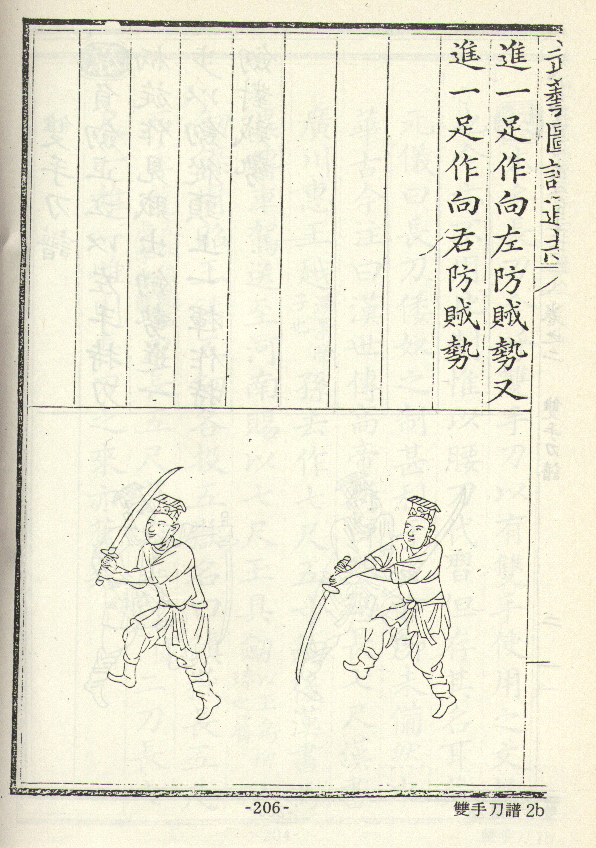 武藝圖譜通志
進一足作向左防賊勢又
進一足作向右防賊勢
-206-
雙手刀譜 2b